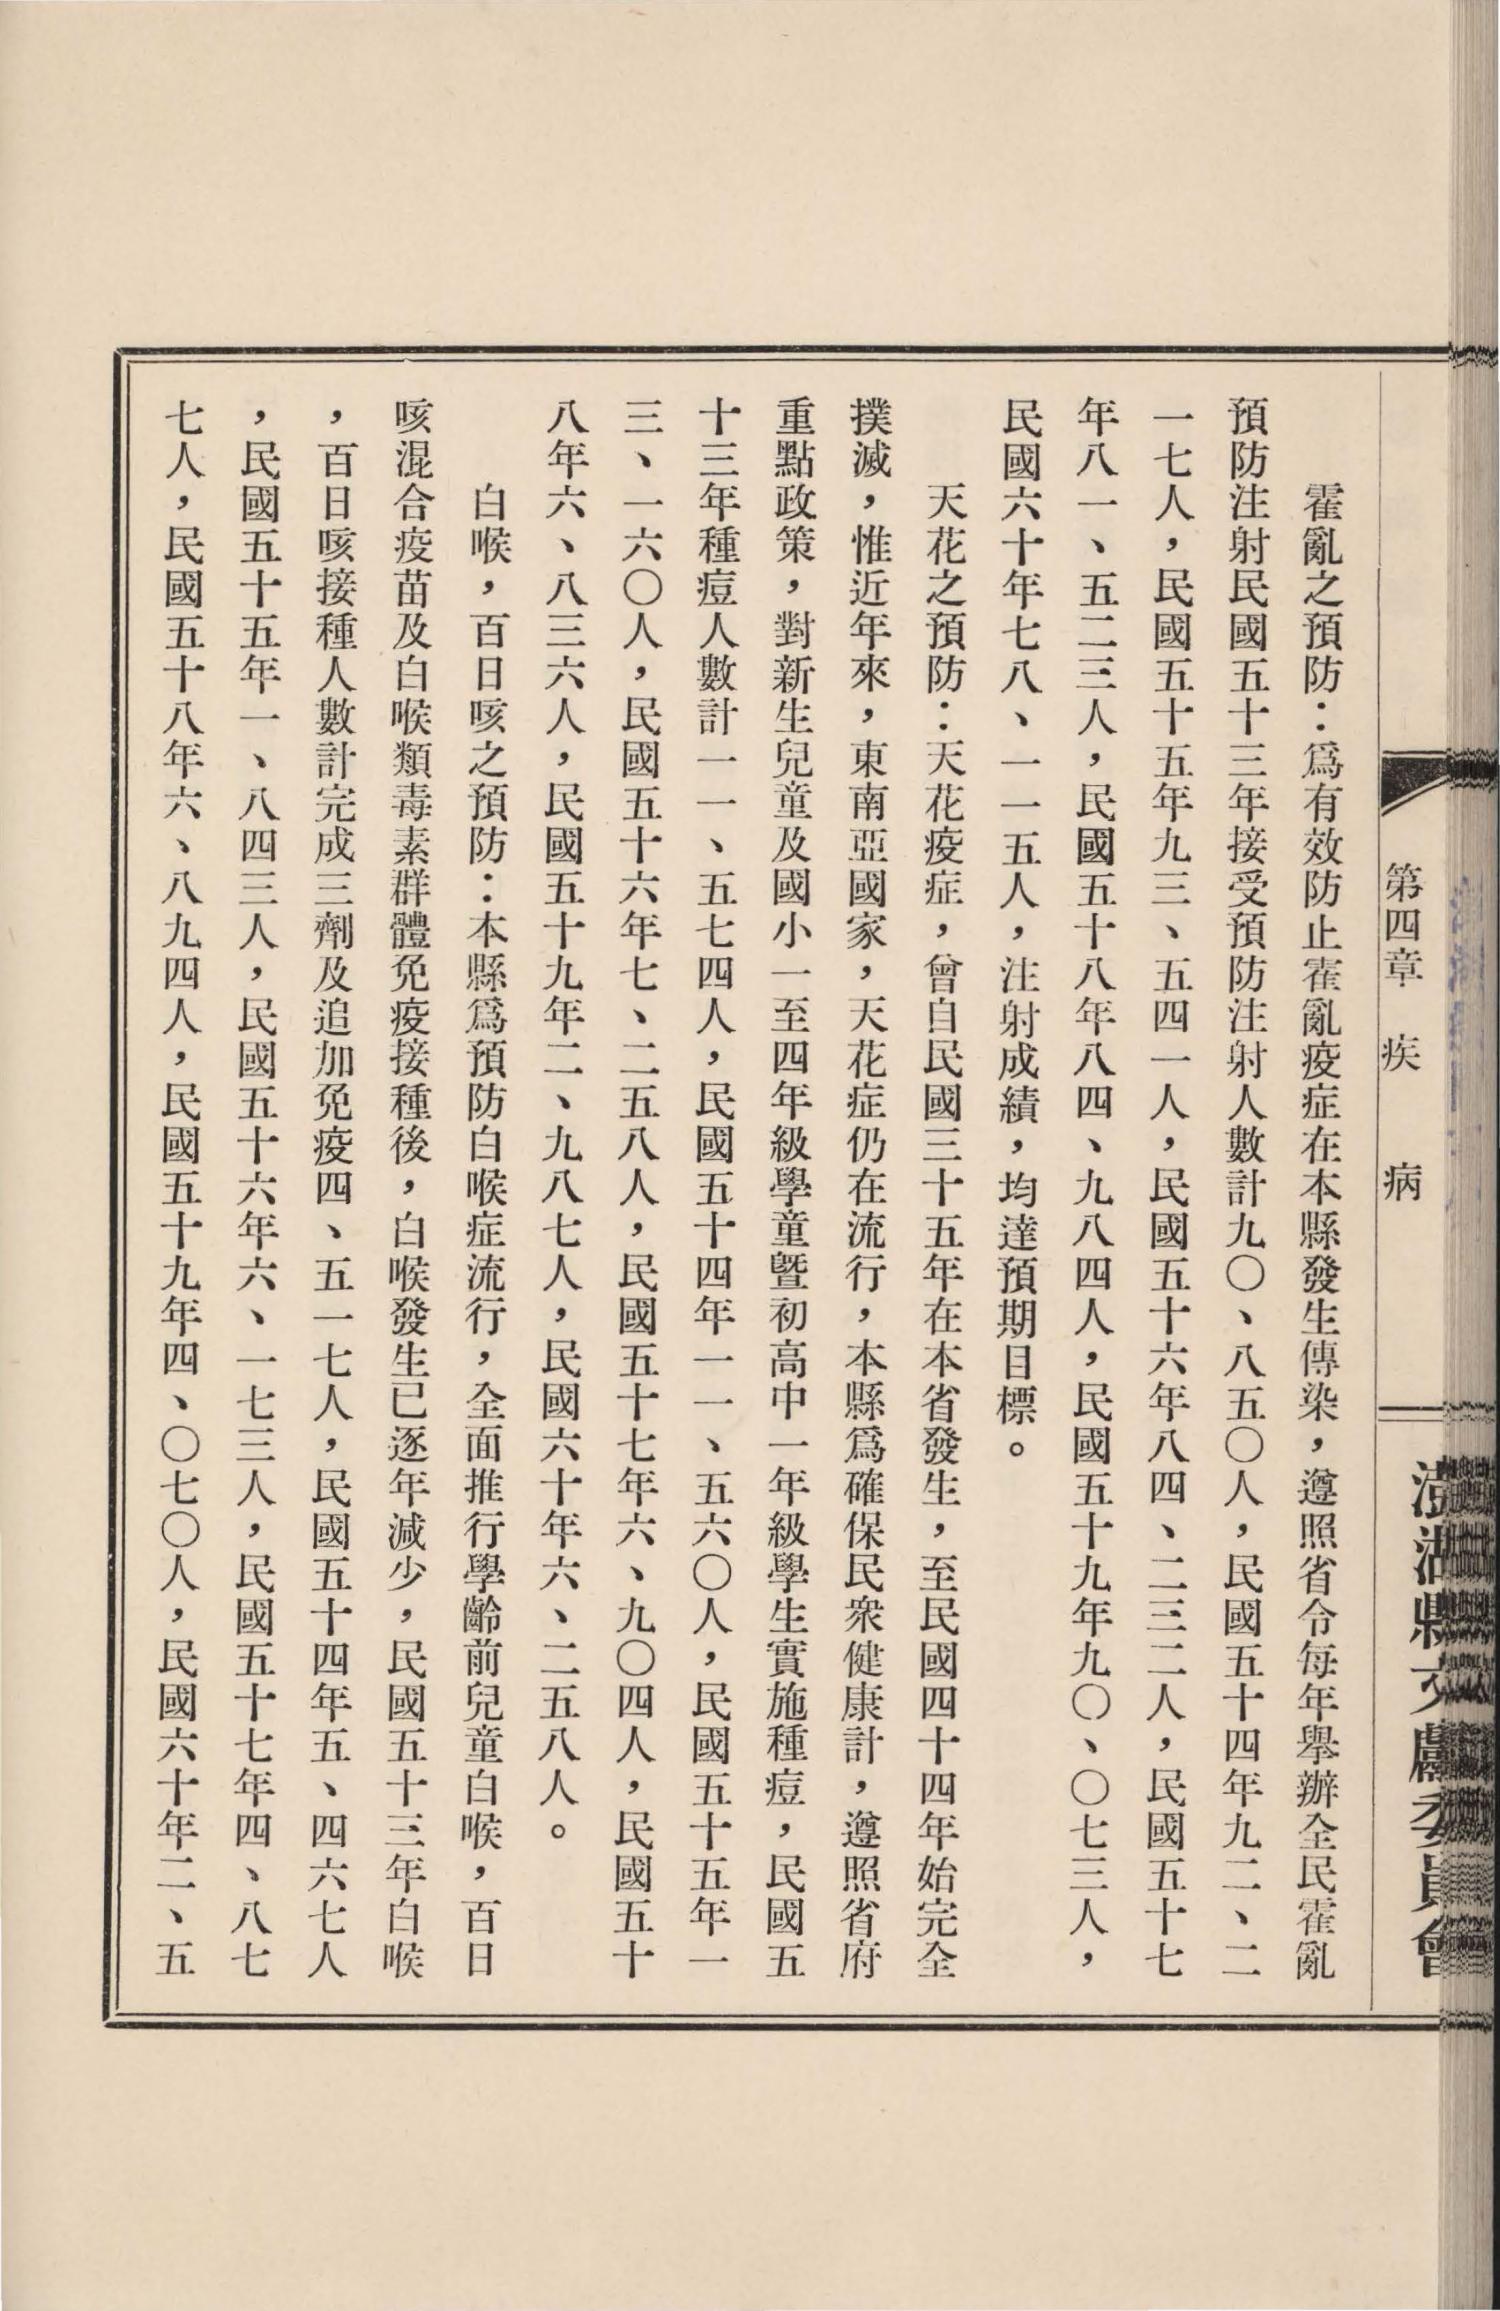 第四章　疾　病
澎湖縣文獻委員會
霍亂之預防：爲有效防止霍亂疫症在本縣發生傳染，遵照省令每年舉辦全民霍亂
預防注射民國五十三年接受預防注射人數計九〇、八五〇人，民國五十四年九二、二
一七人，民國五十五年九三、五四一人，民國五十六年八四、二三二人，民國五十七
年八一、五二三人，民國五十八年八四、九八四人，民國五十九年九〇、〇七三人，
民國六十年七八、一一五人，注射成績，均達預期目標。
天花之預防：天花疫症，曾自民國三十五年在本省發生，至民國四十四年始完全
撲滅，惟近年來，東南亞國家，天花症仍在流行，本縣爲確保民衆健康計，遵照省府
重點政策，對新生兒童及國小一至四年級學童暨初高中一年級學生實施種痘，民國五
十三年種痘人數計一一、五七四人，民國五十四年一一、五六〇人，民國五十五年一
三、一六〇人，民國五十六年七、二五八人，民國五十七年六、九〇四人，民國五十
八年六、八三六人，民國五十九年二、九八七人，民國六十年六、二五八人。
白喉，百日咳之預防：本縣爲預防白喉症流行，全面推行學齡前兒童白喉，百日
咳混合疫苗及白喉類毒素群體免疫接種後，白喉發生已逐年減少，民國五十三年白喉
，百日咳接種人數計完成三劑及追加免疫四、五一七人，民國五十四年五、四六七人
，民國五十五年一、八四三人，民國五十六年六、一七三人，民國五十七年四、八七
七人，民國五十八年六、八九四人，民國五十九年四、〇七〇人，民國六十年二、五